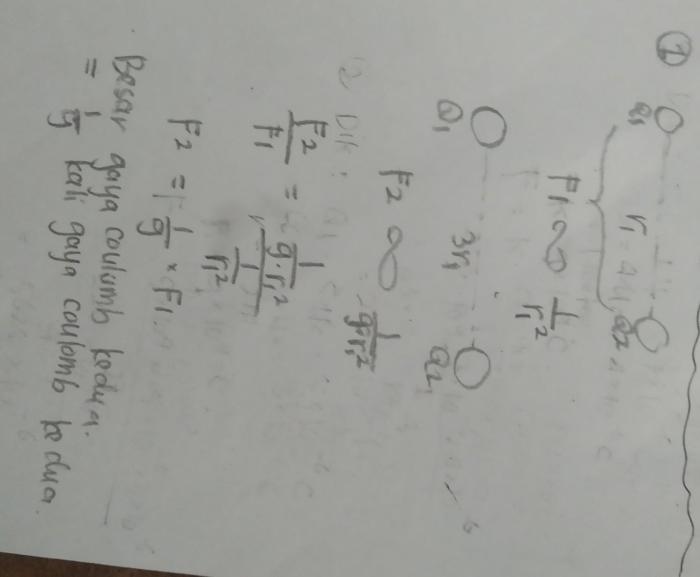 ①
Q1 Q2
r1
F1 ∝ 1/r1²
Q1 3r1 Q2
F2 ∝ 1/9r1²
F2/F1 = 1/9.r1² / 1/r1²
F2 = 1/9 × F1.
Besar gaya coulumb kedua.
= 1/9 kali gaya coulomb kedua.